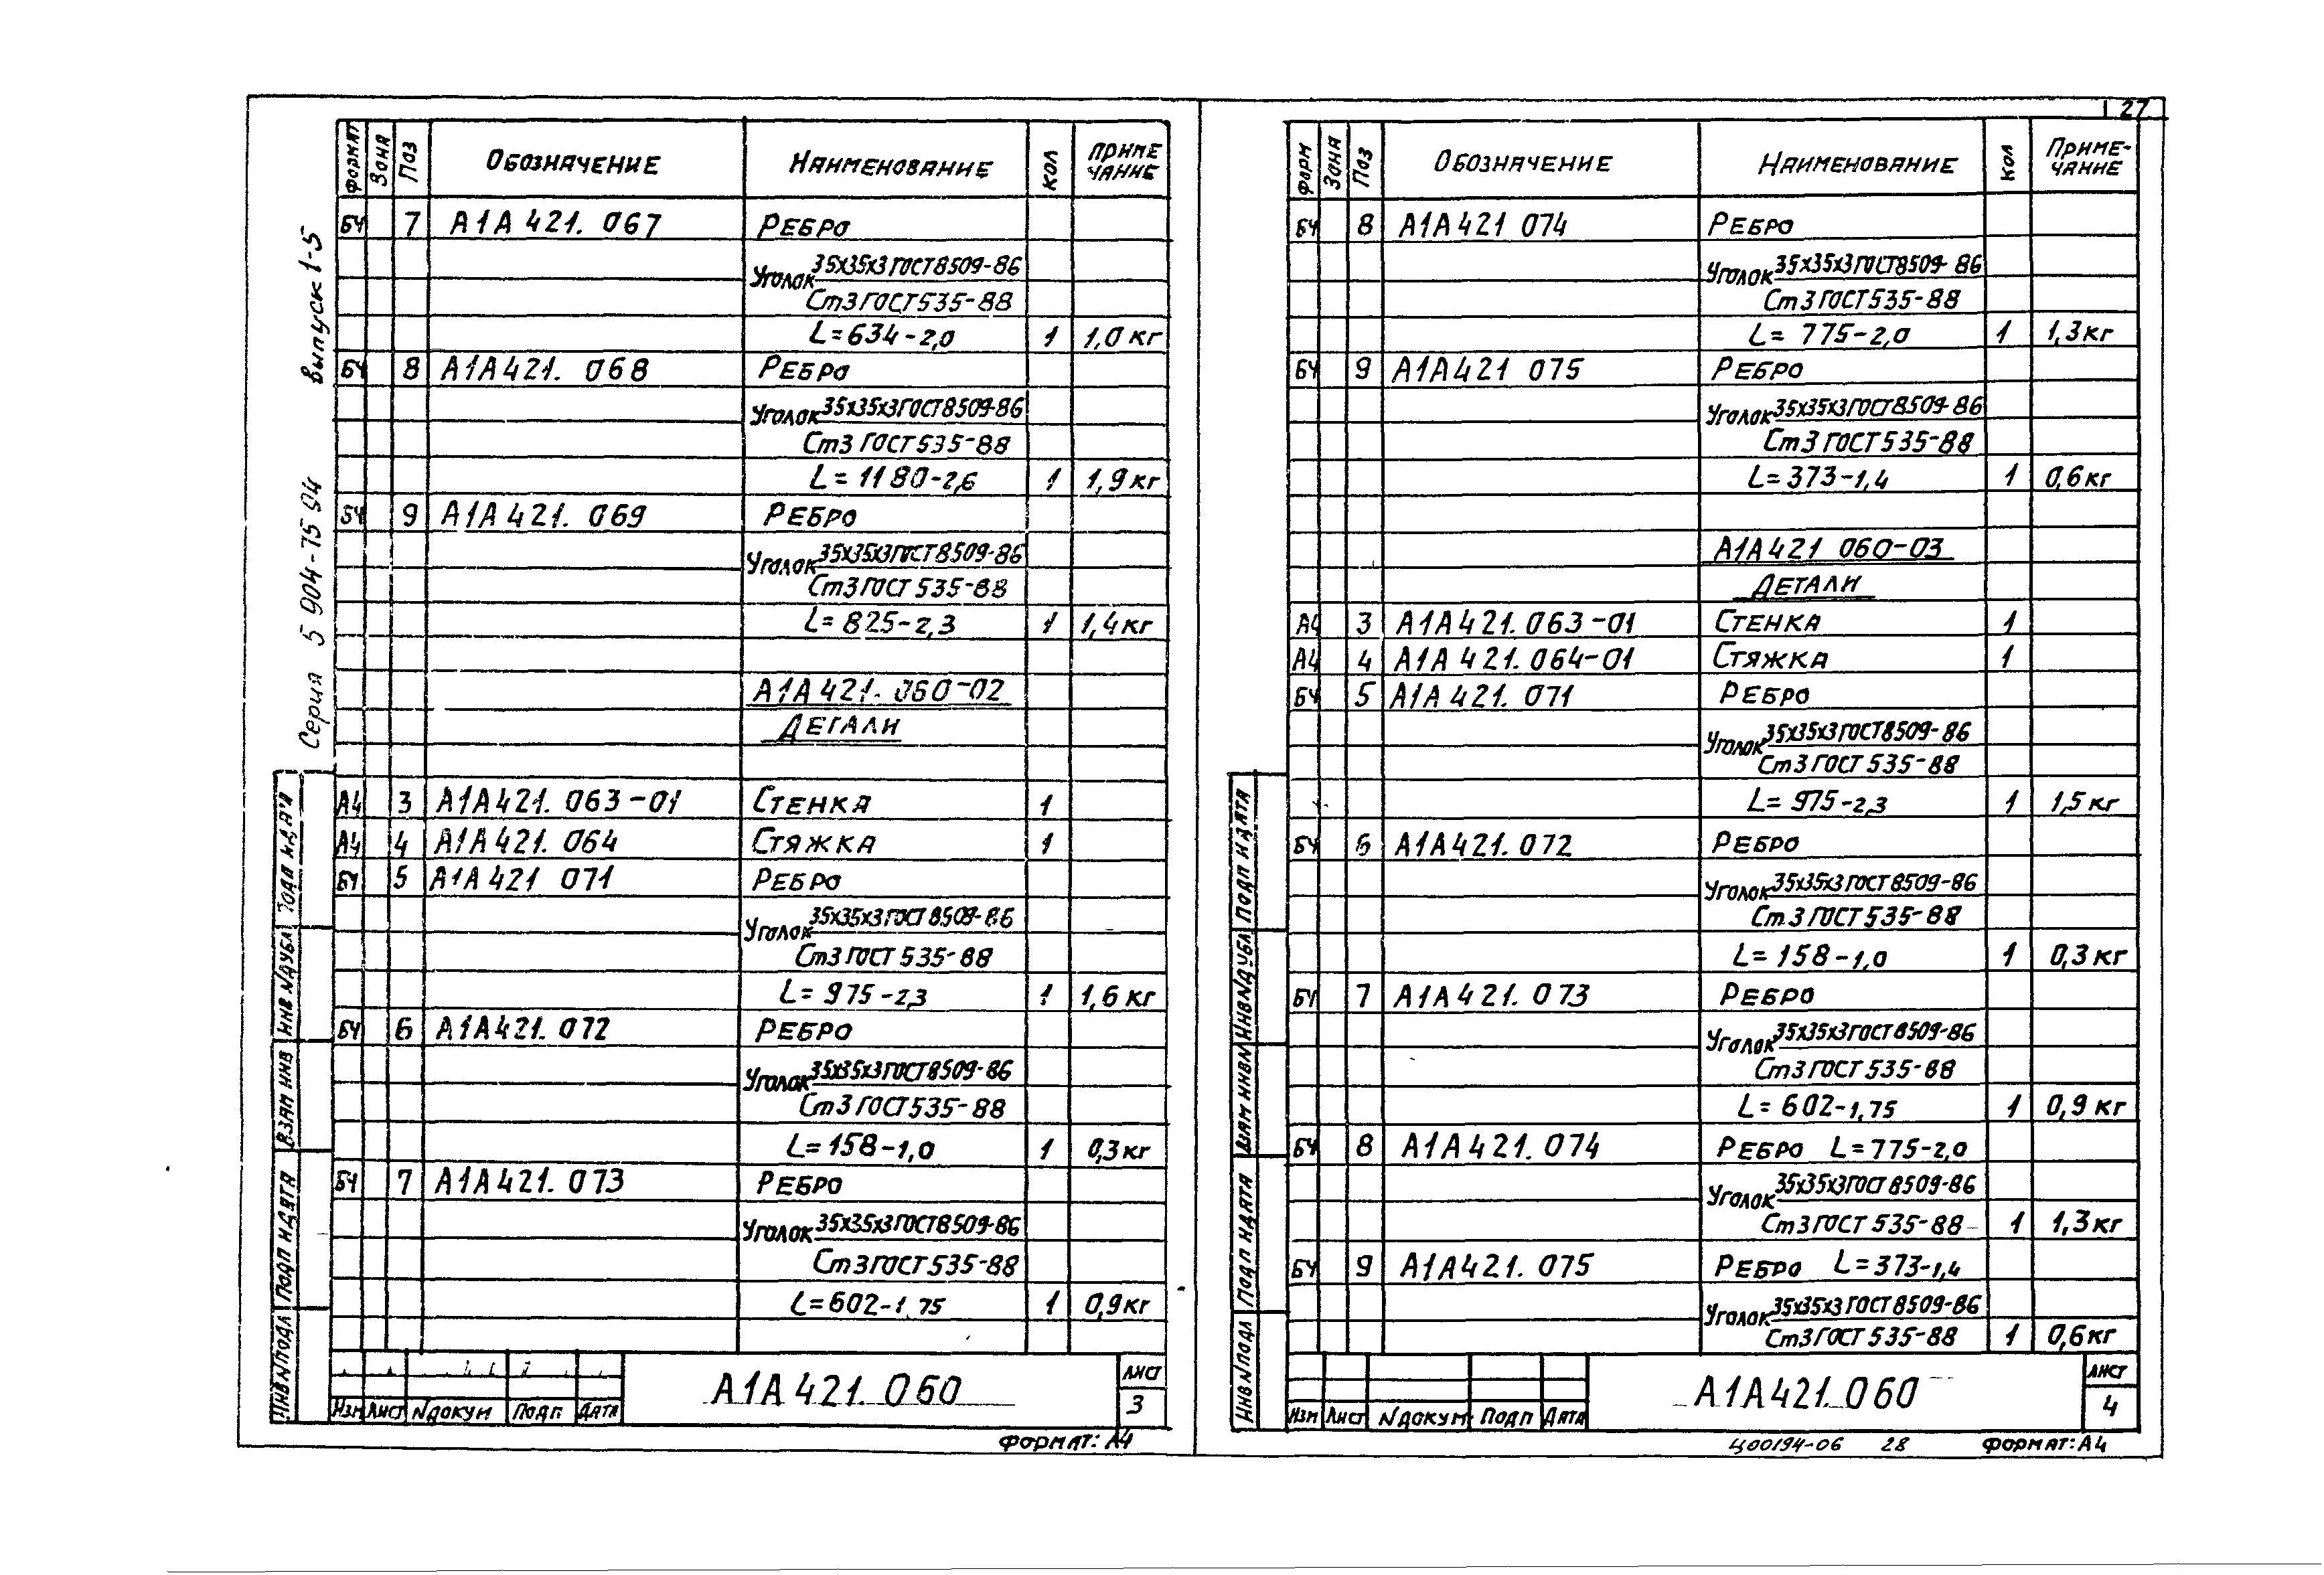 27
Серия 5 904-75 94 Выпуск 1-5
ФОРМАТ ЗОНА ПОЗ ОБОЗНАЧЕНИЕ НАИМЕНОВАНИЕ КОЛ ПРИМЕ
ЧАНИЕ
БЧ 7 А1А 421. 067 РЕБРО
Уголок 35х35х3 ГОСТ 8509-86
Ст3 ГОСТ 535-88
L=634-2,0 1 1,0 кг
БЧ 8 А1А 421. 068 РЕБРО
Уголок 35х35х3 ГОСТ 8509-86
Ст3 ГОСТ 535-88
L=1180-2,6 1 1,9 кг
БЧ 9 А1А 421. 069 РЕБРО
Уголок 35х35х3 ГОСТ 8509-86
Ст3 ГОСТ 535-88
L=825-2,3 1 1,4 кг
А1А 421. 060-02
ДЕТАЛИ
А4 3 А1А 421. 063-01 СТЕНКА 1
А4 4 А1А 421. 064 СТЯЖКА 1
БЧ 5 А1А 421 071 РЕБРО
Уголок 35х35х3 ГОСТ 8509-86
Ст3 ГОСТ 535-88
L=975-2,3 1 1,6 кг
БЧ 6 А1А 421. 072 РЕБРО
Уголок 35х35х3 ГОСТ 8509-86
Ст3 ГОСТ 535-88
L=158-1,0 1 0,3 кг
БЧ 7 А1А 421. 073 РЕБРО
Уголок 35х35х3 ГОСТ 8509-86
Ст3 ГОСТ 535-88
L=602-1,75 1 0,9 кг
ИНВ N ПОДЛ ПОДП И ДАТА ВЗАМ ИНВ ИНВ N ДУБЛ ПОДП И ДАТА
ИЗМ ЛИСТ N ДОКУМ ПОДП ДАТА
А1А 421. 060
ЛИСТ
3
ФОРМАТ: А4
ФОРМ ЗОНА ПОЗ ОБОЗНАЧЕНИЕ НАИМЕНОВАНИЕ КОЛ ПРИМЕ-
ЧАНИЕ
БЧ 8 А1А 421 074 РЕБРО
Уголок 35х35х3 ГОСТ 8509-86
Ст3 ГОСТ 535-88
L= 775-2,0 1 1,3 кг
БЧ 9 А1А 421 075 РЕБРО
Уголок 35х35х3 ГОСТ 8509-86
Ст3 ГОСТ 535-88
L=373-1,4 1 0,6 кг
А1А 421 060-03
ДЕТАЛИ
А4 3 А1А 421. 063-01 СТЕНКА 1
А4 4 А1А 421. 064-01 СТЯЖКА 1
БЧ 5 А1А 421. 071 РЕБРО
Уголок 35х35х3 ГОСТ 8509-86
Ст3 ГОСТ 535-88
L= 975-2,3 1 1,5 кг
БЧ 6 А1А 421. 072 РЕБРО
Уголок 35х35х3 ГОСТ 8509-86
Ст3 ГОСТ 535-88
L=158-1,0 1 0,3 кг
БЧ 7 А1А 421. 073 РЕБРО
Уголок 35х35х3 ГОСТ 8509-86
Ст3 ГОСТ 535-88
L=602-1,75 1 0,9 кг
БЧ 8 А1А 421. 074 РЕБРО L=775-2,0
Уголок 35х35х3 ГОСТ 8509-86
Ст3 ГОСТ 535-88 1 1,3 кг
БЧ 9 А1А 421. 075 РЕБРО L=373-1,4
Уголок 35х35х3 ГОСТ 8509-86
Ст3 ГОСТ 535-88 1 0,6 кг
ИНВ N ПОДЛ ПОДП И ДАТА ВЗАМ ИНВ N ИНВ N ДУБЛ ПОДП И ДАТА
ИЗМ ЛИСТ N ДОКУМ ПОДП ДАТА
А1А 421. 060
ЛИСТ
4
Ц00194-06 28 ФОРМАТ: А4